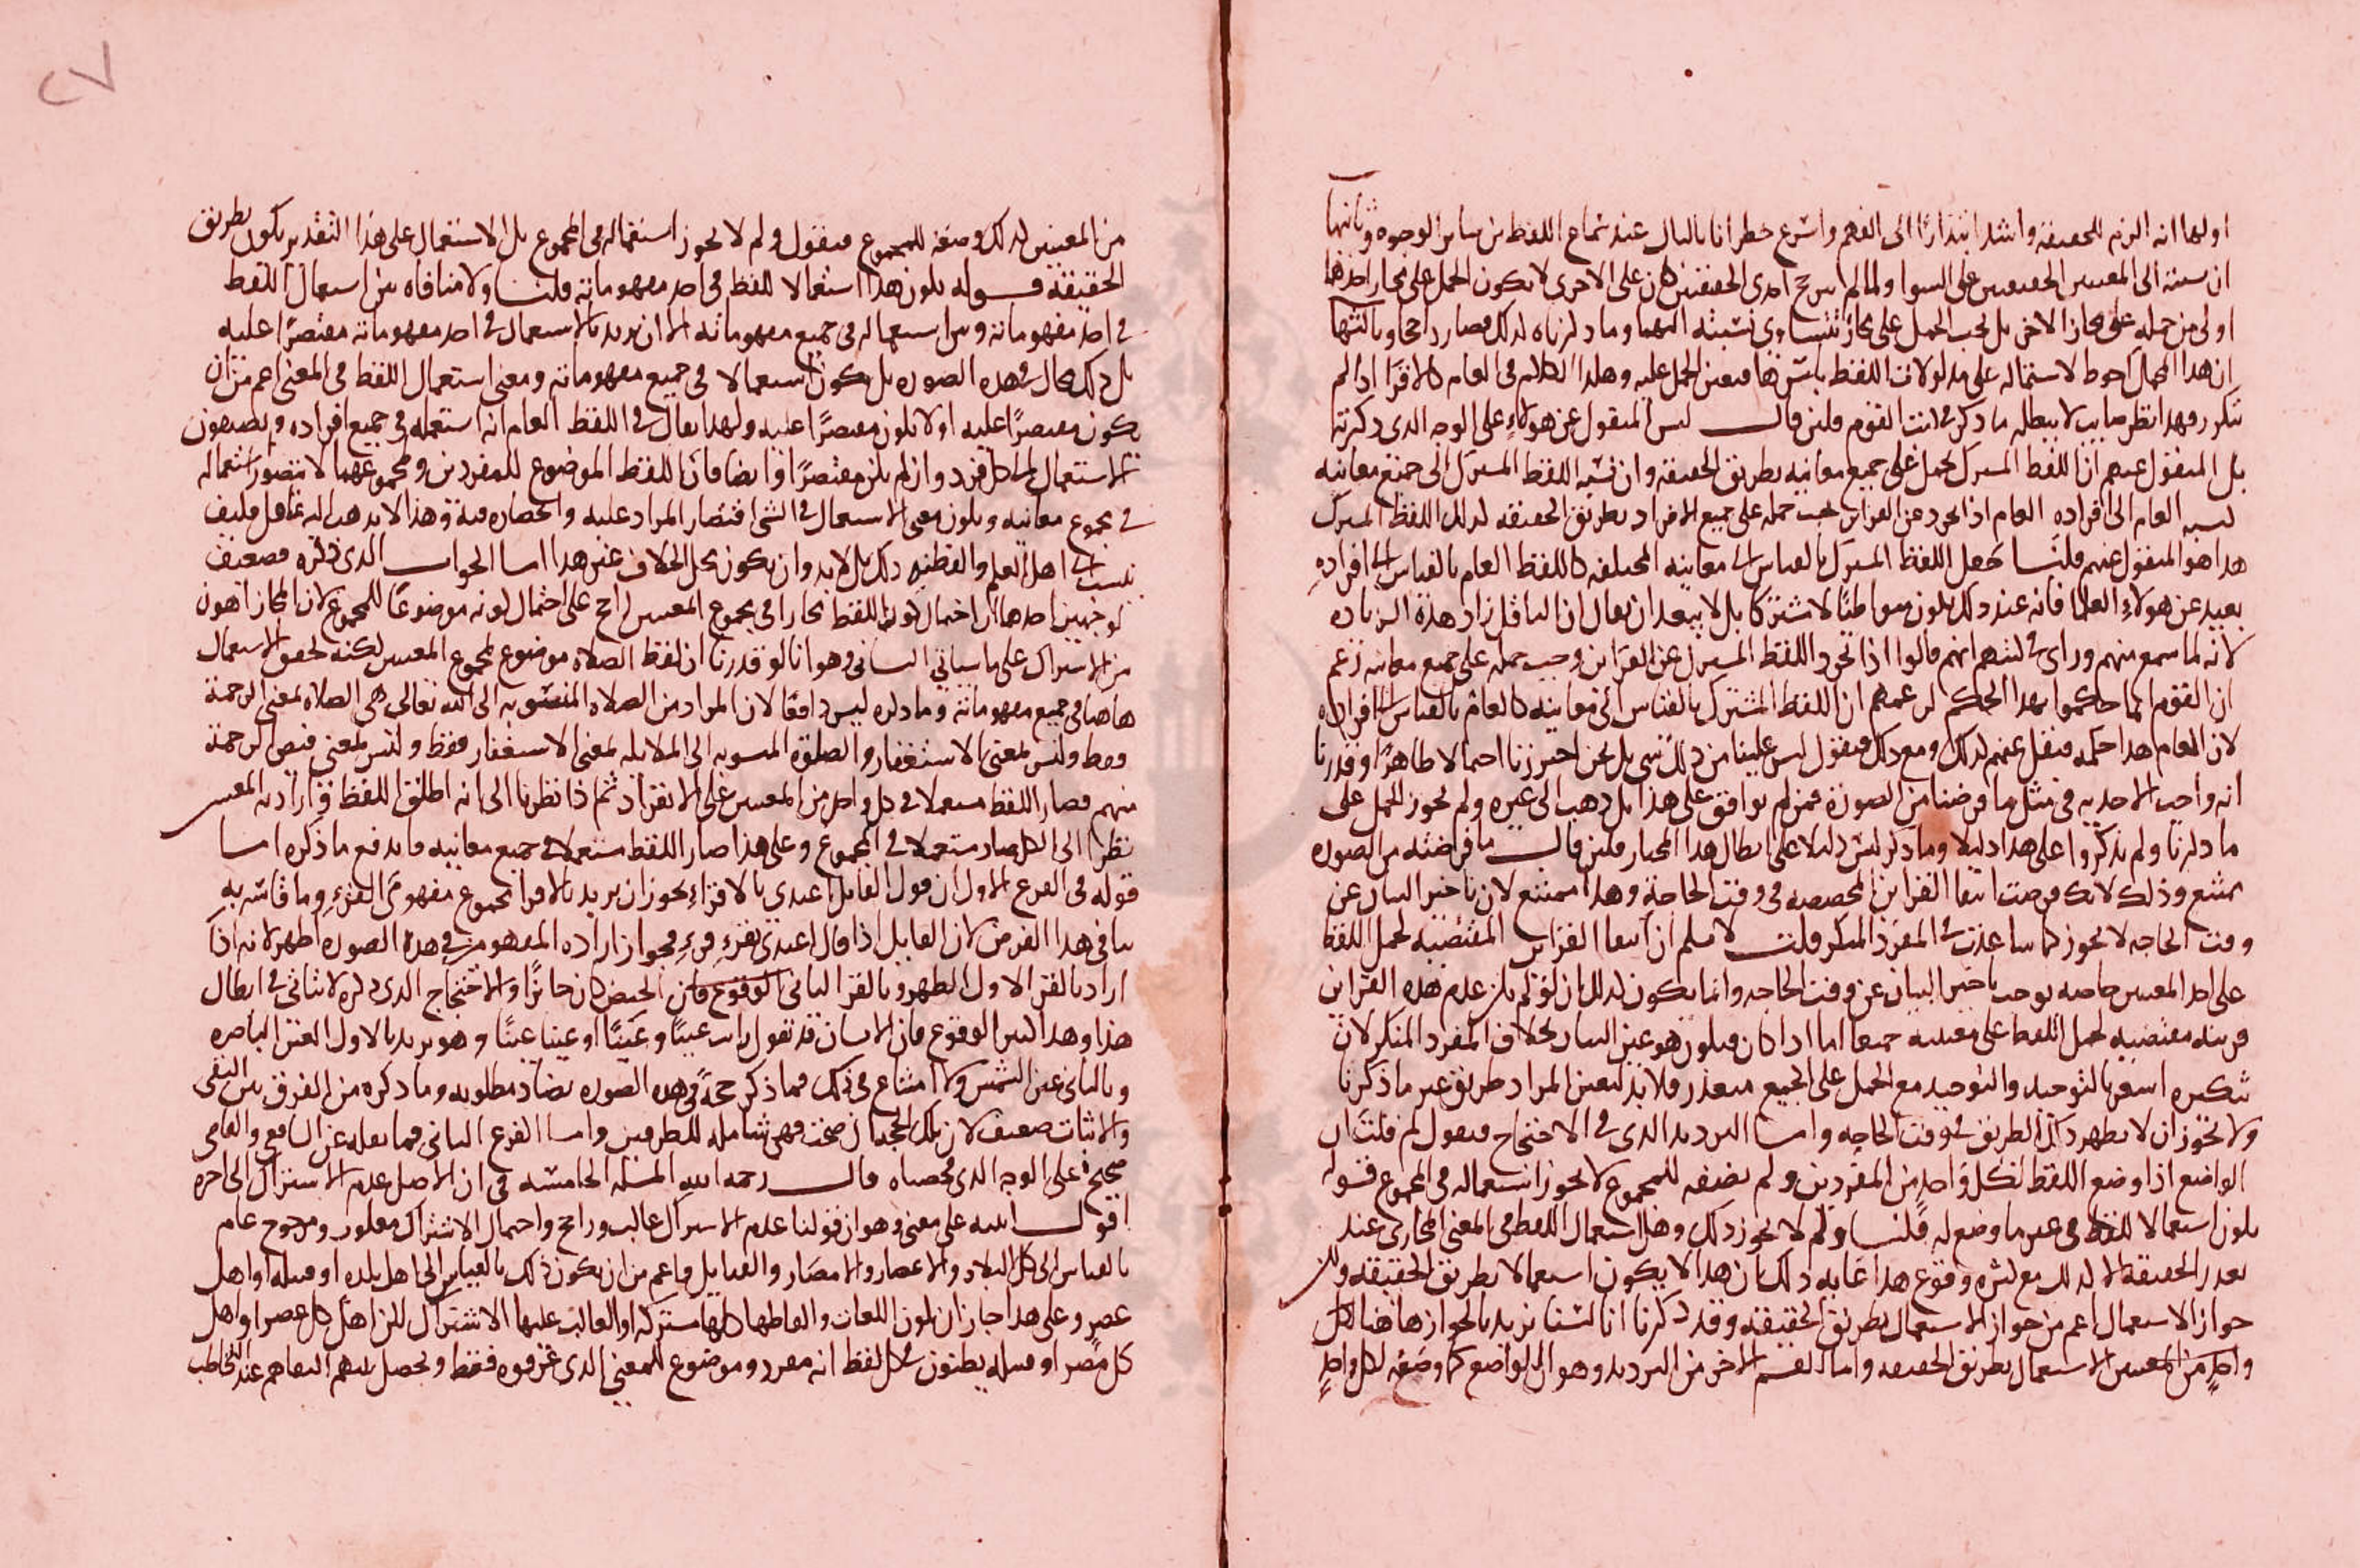 اولها انه الزم للحقيقة واشد ابتدارًا الى الفهم واسرع خطرانا بالبال عند سماع اللفظ من ساير الوجوه وثانيها
ان نسبته الى المعنيين الحقيقيين على السوا ولما لم يترجح احدى الحقيقتين على الاخرى لا يكون الحمل على مجاز احدهما
اولى من حمله على مجاز الاخر بل يجب الحمل على مجاز تتساوى نسبته اليهما وما ذكرناه كذلك فصار راجحا وثالثها
ان هذا الحمل احوط لاشتماله على مدلولات اللفظ باسرها فيتعين الحمل عليه وهكذا الكلام في العام كالاقرا اذا لم
تتكرر وهذا نظر صايب لا يبطله ما ذكر في كتب القوم فلين قال ليس المنقول عن هولاء على الوجه الذي ذكرته
بل المنقول عنهم ان اللفظ المشترك يحمل على جميع معانيه بطريق الحقيقة وان نسبة اللفظ المشترك الى جميع معانيه
كنسبة العام الى افراده العام اذا تجرد عن القراين يجب حمله على جميع الافراد بطريق الحقيقة كذلك اللفظ المشترك
هذا هو المنقول عنهم قلنا جعل اللفظ المشترك بالقياس الى معانيه المختلفة كاللفظ العام بالقياس الى افراده
بعيد عن هولاء العلما فانه عند ذلك يكون متواطئا لا مشتركا بل لا يبعد ان يقال ان الناقل زاد هذه الزياده
لانه لما سمع منهم وراى في كتبهم انهم قالوا اذا تجرد اللفظ المشترك عن القراين وجب حمله على جميع معانيه زعم
ان القوم انما حكموا بهذا الحكم لزعمهم ان اللفظ المشترك بالقياس الى معانيه كالعام بالقياس الى افراده
لان العام هذا حكمه فنقل عنهم كذلك ومع ذلك فنقول ليس علينا من ذلك شي بل نحن احترزنا احتمالا ظاهرًا وقدرنا
انه واجب الاخذ به في مثل ما فرضنا من الصورة فمن لم يوافق على هذا بل ذهب الى غيره ولم يجوز الحمل على
ما ذكرنا ولم يذكروا على هذا دليلا وما ذكر ليس دليلا على ابطال هذا المختار فلين قال ما فرضته من الصوره
ممتنع وذلك لانك فرضت انتفا القراين المخصصه في وقت الحاجة وهذا ممتنع لان تاخير البيان عن
وقت الحاجه لا يجوز كما ساعدت في المفرد المنكر قلت لا نسلم ان انتفا القراين المقتضيه لحمل اللفظ
على احد المعنيين خاصه يوجب تاخير البيان عن وقت الحاجه وانما يكون كذلك ان لو لم يكن عدم هذه القراين
قرينه مقتضيه لحمل اللفظ على معنييه جميعا اما اذا كان فيكون هو عين البيان بخلاف المفرد المنكر لان
تنكيره اشعر بالتوحيد والتوحيد مع الحمل على الجميع متعذر فلا بد لتعين المراد طريق غير ما ذكرنا
ولا يجوز ان لا يظهر ذلك الطريق في وقت الحاجه واما الترديد الذي في الاحتجاج فنقول لم قلت ان
الواضع اذا وضع اللفظ لكل واحد من المفردين ولم يضعه للمجموع لا يجوز استعماله في المجموع قوله
يكون استعمالا للفظ في غير ما وضع له قلنا ولم لا يجوز ذلك وهل استعمال اللفظ في المعنى المجازي عند
تعذر الحقيقة الا كذلك مع كثره وقوع هذا غايه ذلك ان هذا لا يكون استعمالا بطريق الحقيقه ولكن
جواز الاستعمال اعم من جواز الاستعمال بطريق الحقيقة وقد ذكرنا انا لسنا نريد بالجواز هاهنا لكل
واحد من المعنيين الاستعمال بطريق الحقيقه واما القسم الاخر من الترديد وهو ان الواضع كما وضعه لكل واحد
من المعنيين كذلك وضعه للمجموع فنقول ولم لا يجوز استعماله في المجموع بل الاستعمال على هذا التقدير يكون بطريق
الحقيقة قوله يكون هذا استعمالا للفظ في احد مفهوماته قلنا ولا منافاه بين استعمال اللفظ
في احد مفهوماته وبين استعماله في جميع مفهوماته الا ان يريد بالاستعمال في احد مفهوماته مقتصرًا عليه
بل ذلك محال في هذه الصوره بل يكون استعمالا في جميع مفهوماته ومعنى استعمال اللفظ في المعنى اعم من ان
يكون مقتصرًا عليه او لا يكون مقتصرًا عليه ولهذا يقال في اللفظ العام انه استعمله في جميع افراده ويضيفون
الاستعمال الى كل فرد وان لم يكن مقتصرًا وايضا فان اللفظ الموضوع للمفردين ومجموعهما لا يتصور استعماله
في مجموع معانيه ويكون معنى الاستعمال في الشي اقتصار المراد عليه وانحصاره فيه وهذا لا يذهب اليه غافل فكيف
ينسب الى اهل العلم والفطنه ذلك بل لابد وان يكون محل الخلاف غير هذا اما الجواب الذي ذكره فضعيف
لوجهين احدهما ان احتمال كون اللفظ مجازا في مجموع المعنيين راجح على احتمال كونه موضوعًا للمجموع لان المجاز اهون
من الاشتراك على ما سياتي الثاني وهو انا لو قدرنا ان لفظ الصلاه موضوع لمجموع المعنيين لكنه تحقق الاستعمال
هاهنا في جميع مفهوماته وما ذكره ليس دافعًا لان المراد من الصلاه المنسوبه الى الله تعالى هي الصلاه بمعنى الرحمة
فقط وليس بمعنى الاستغفار والصلوة المنسوبه الى الملايكه بمعنى الاستغفار فقط وليس بمعنى فيض الرحمة
منهم فصار اللفظ مستعملا في كل واحد من المعنيين على الانفراد ثم اذا نظرنا الى انه اطلق اللفظ وارادبه المعنيين
نظرا الى الكل صار مستعملا في المجموع وعلى هذا صار اللفظ مستعملا في جميع معانيه فاندفع ما ذكره اما
قوله في الفرع الاول ان قول القايل اعتدي بالاقراء يجوز ان يريد بالاقرا مجموع مفهومي القرء وما قاسه به
ينافي هذا الفرض لان القايل اذا قال اعتدي بقرء قرء فجواز اراده المفهومين في هذه الصوره اظهر لانه اذا
اراد بالقرا الاول الطهر وبالقرا الثاني الحيض كان جائزًا والاحتجاج الذي ذكره لا يتاتى في ابطال
هذا وهذا كثير الوقوع فان الانسان قد تقول رايت عينًا وعينًا او عينا عينًا وهو يريد بالاول العين الباصره
وبالثاني عين الشمس ولا امتناع في ذلك فما ذكر حجة في هذه الصوره يضاد مطلوبه وما ذكره من الفرق بين النفي
والاثبات ضعيف لان تلك الحجه ان صحت فهي شامله للطرفين واما الفرع الثاني فما نقله عن الشافعي والقاضي
صحيح على الوجه الذي لخصناه قال رحمه الله المسله الخامسه في ان الاصل عدم الاشتراك الى اخره
اقول انبه على معنى وهو ان قولنا عدم الاشتراك غالب وراجح واحتمال الاشتراك مغلوب ومرجوح عام
بالقياس الى كل البلاد والاعصار والامصار والقبايل واعم من ان يكون ذلك بالقياس الى اهل بلده او قبيله او اهل
عصر وعلى هذا جاز ان يكون اللغات والفاظها كلها مشتركه او الغالب عليها الاشتراك لكن اهل كل عصر او اهل
كل مصر او قبيله يظنون في كل لفظ انه مفرد وموضوع للمعنى الذي عرفوه فقط ويحصل بينهم التفاهم عند التخاطب